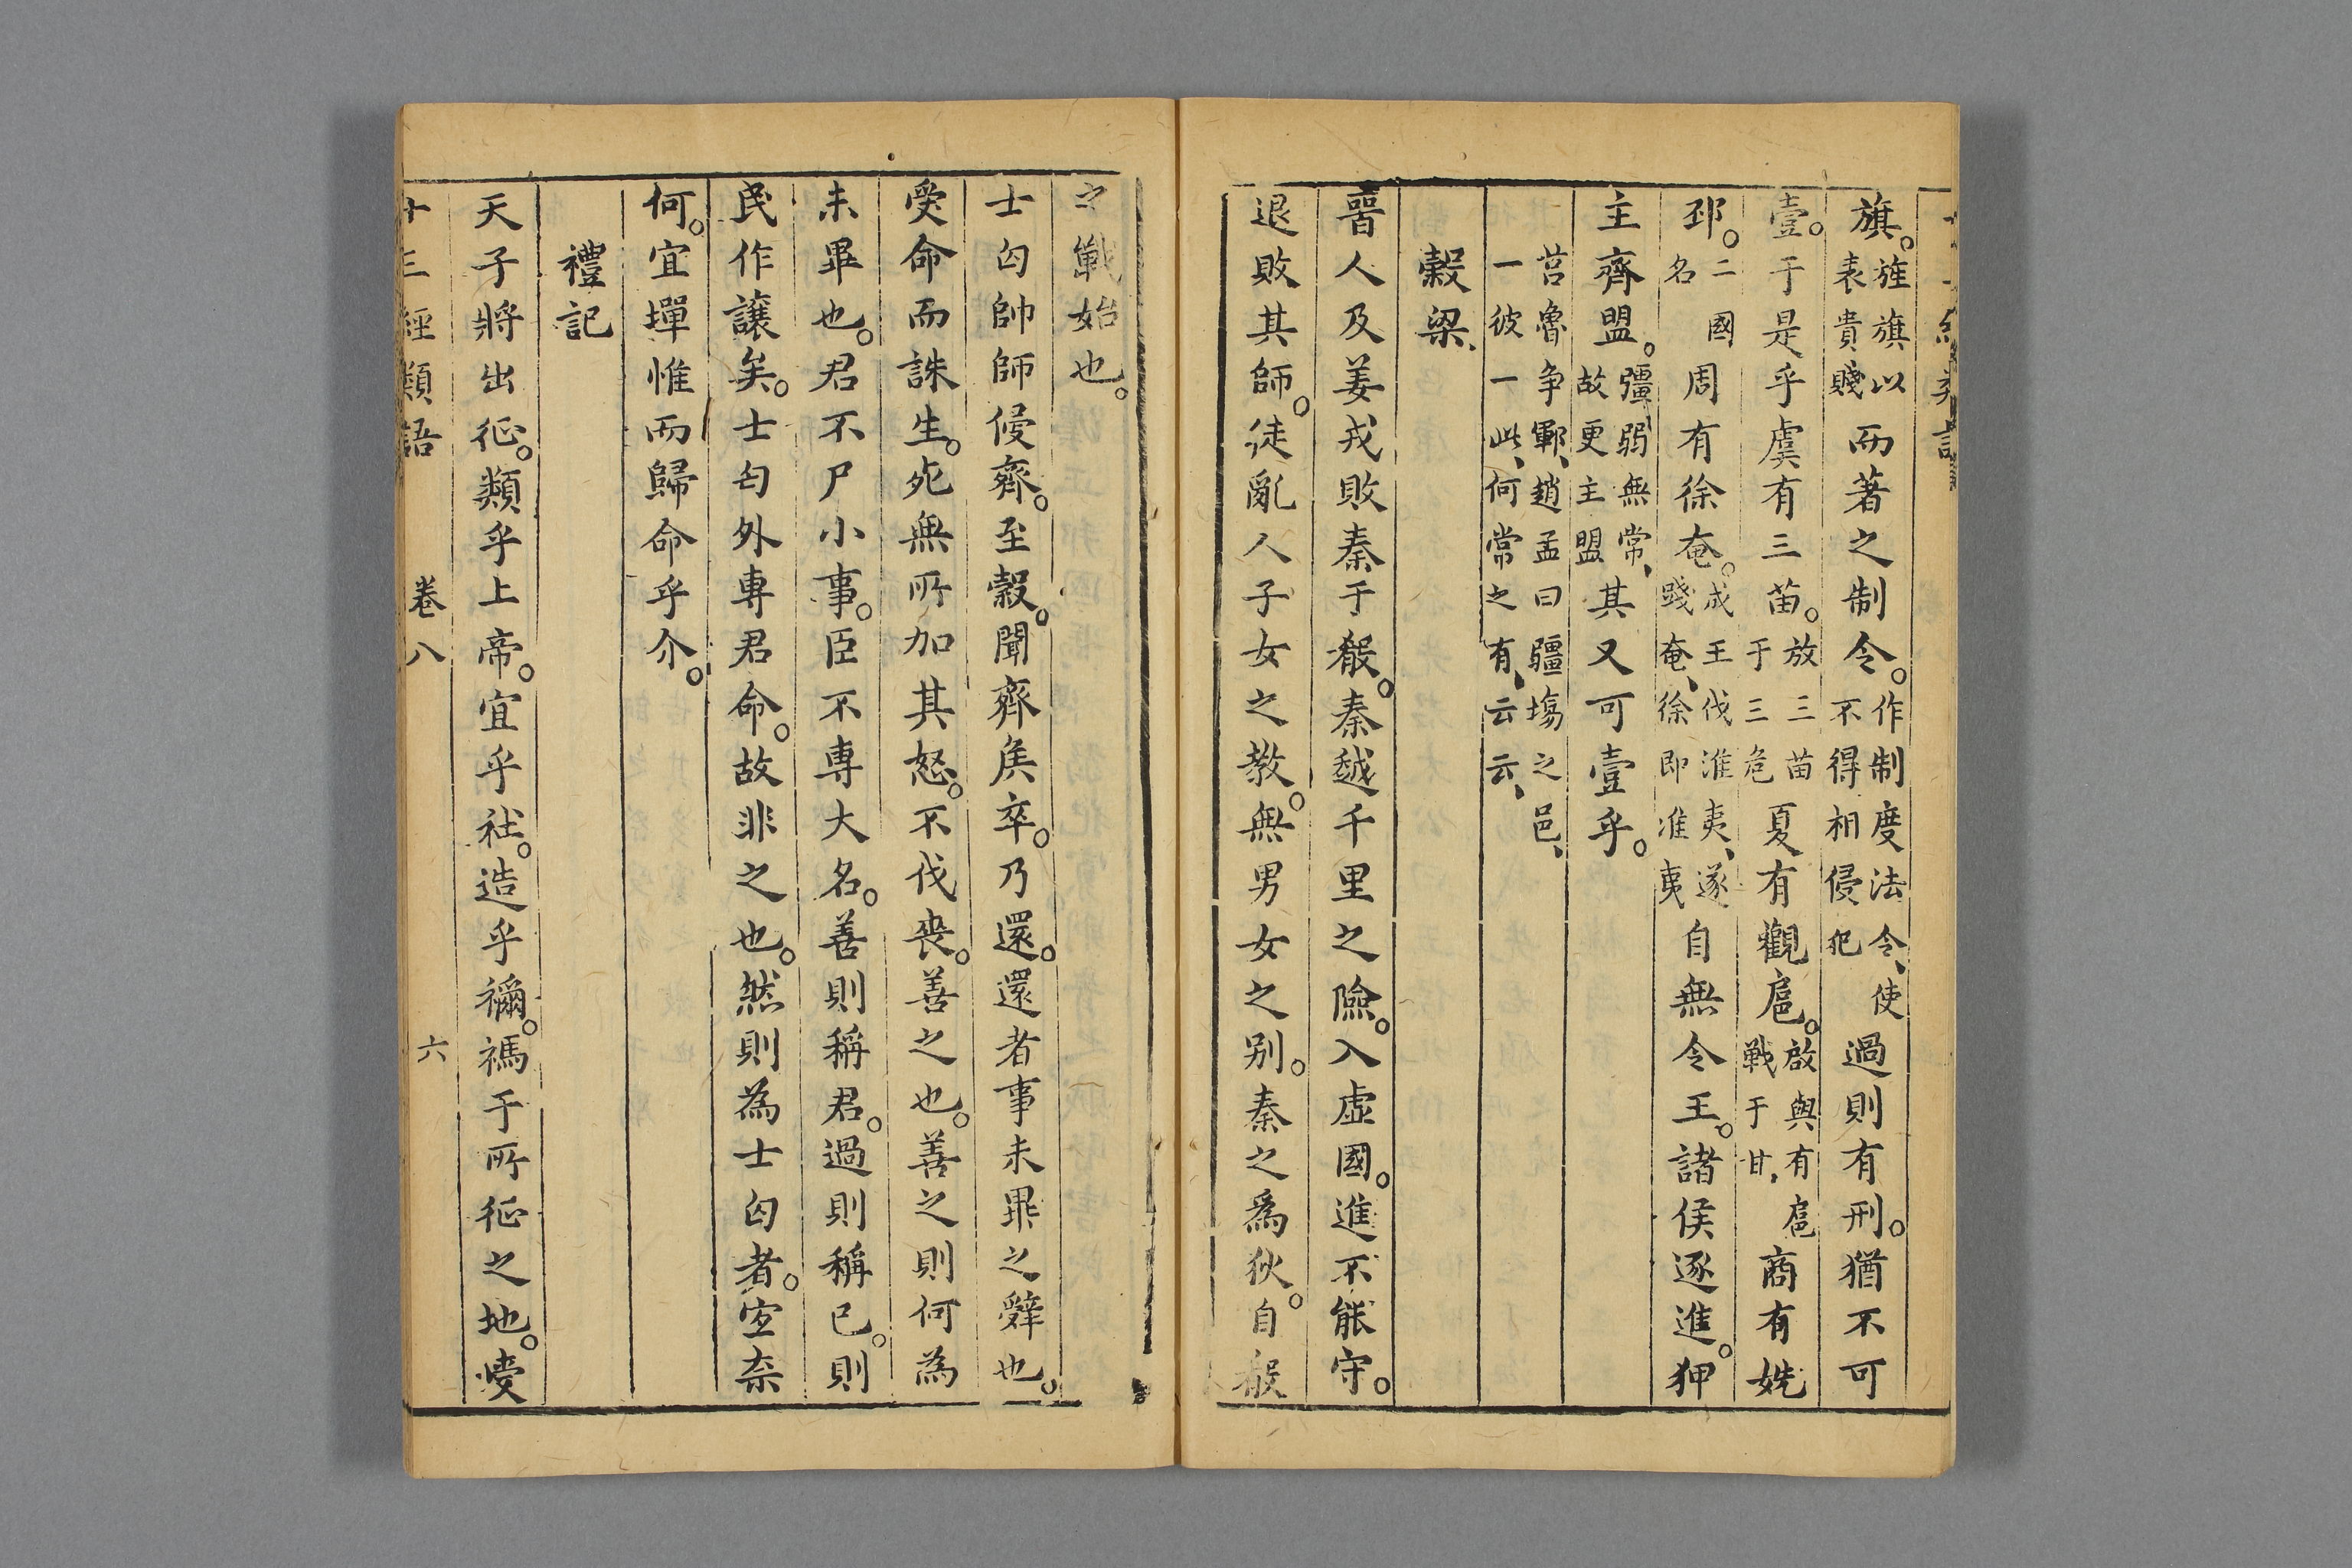 旗。旌旗以表貴賤而著之制令。作制度法令、使不得相侵犯過則有刑。猶不可
壹。于是乎虞有三苗。放三苗于三危夏有觀扈。啟與有扈戰于甘、商有姺
邳。二國名周有徐奄。成王伐淮夷、遂踐奄、徐即淮夷自無令王。諸侯逐進。狎
主齊盟。彊弱無常、故更主盟其又可壹乎。
莒魯争鄆、趙孟曰疆塲之邑、一彼一此、何常之有、云云、
穀梁、
晉人及姜戎敗秦于殽。秦越千里之險。入虛國。進不能守。
退敗其師。徒亂人子女之教。無男女之别。秦之爲狄。自殽
之戰始也。
士匃帥師侵齊。至穀。聞齊矦卒。乃還。還者事未畢之辤也。
受命而誅生。死無所加其怒。不伐喪。善之也。善之則何為
未畢也。君不尸小事。臣不專大名。善則稱君。過則稱已。則
民作讓矣。士匄外專君命。故非之也。然則為士匃者。宜奈
何。宜墠惟而歸命乎介。
禮記
天子將出征。類乎上帝。宜乎社。造乎禰。禡于所征之地。受
十三經類語 卷八 六